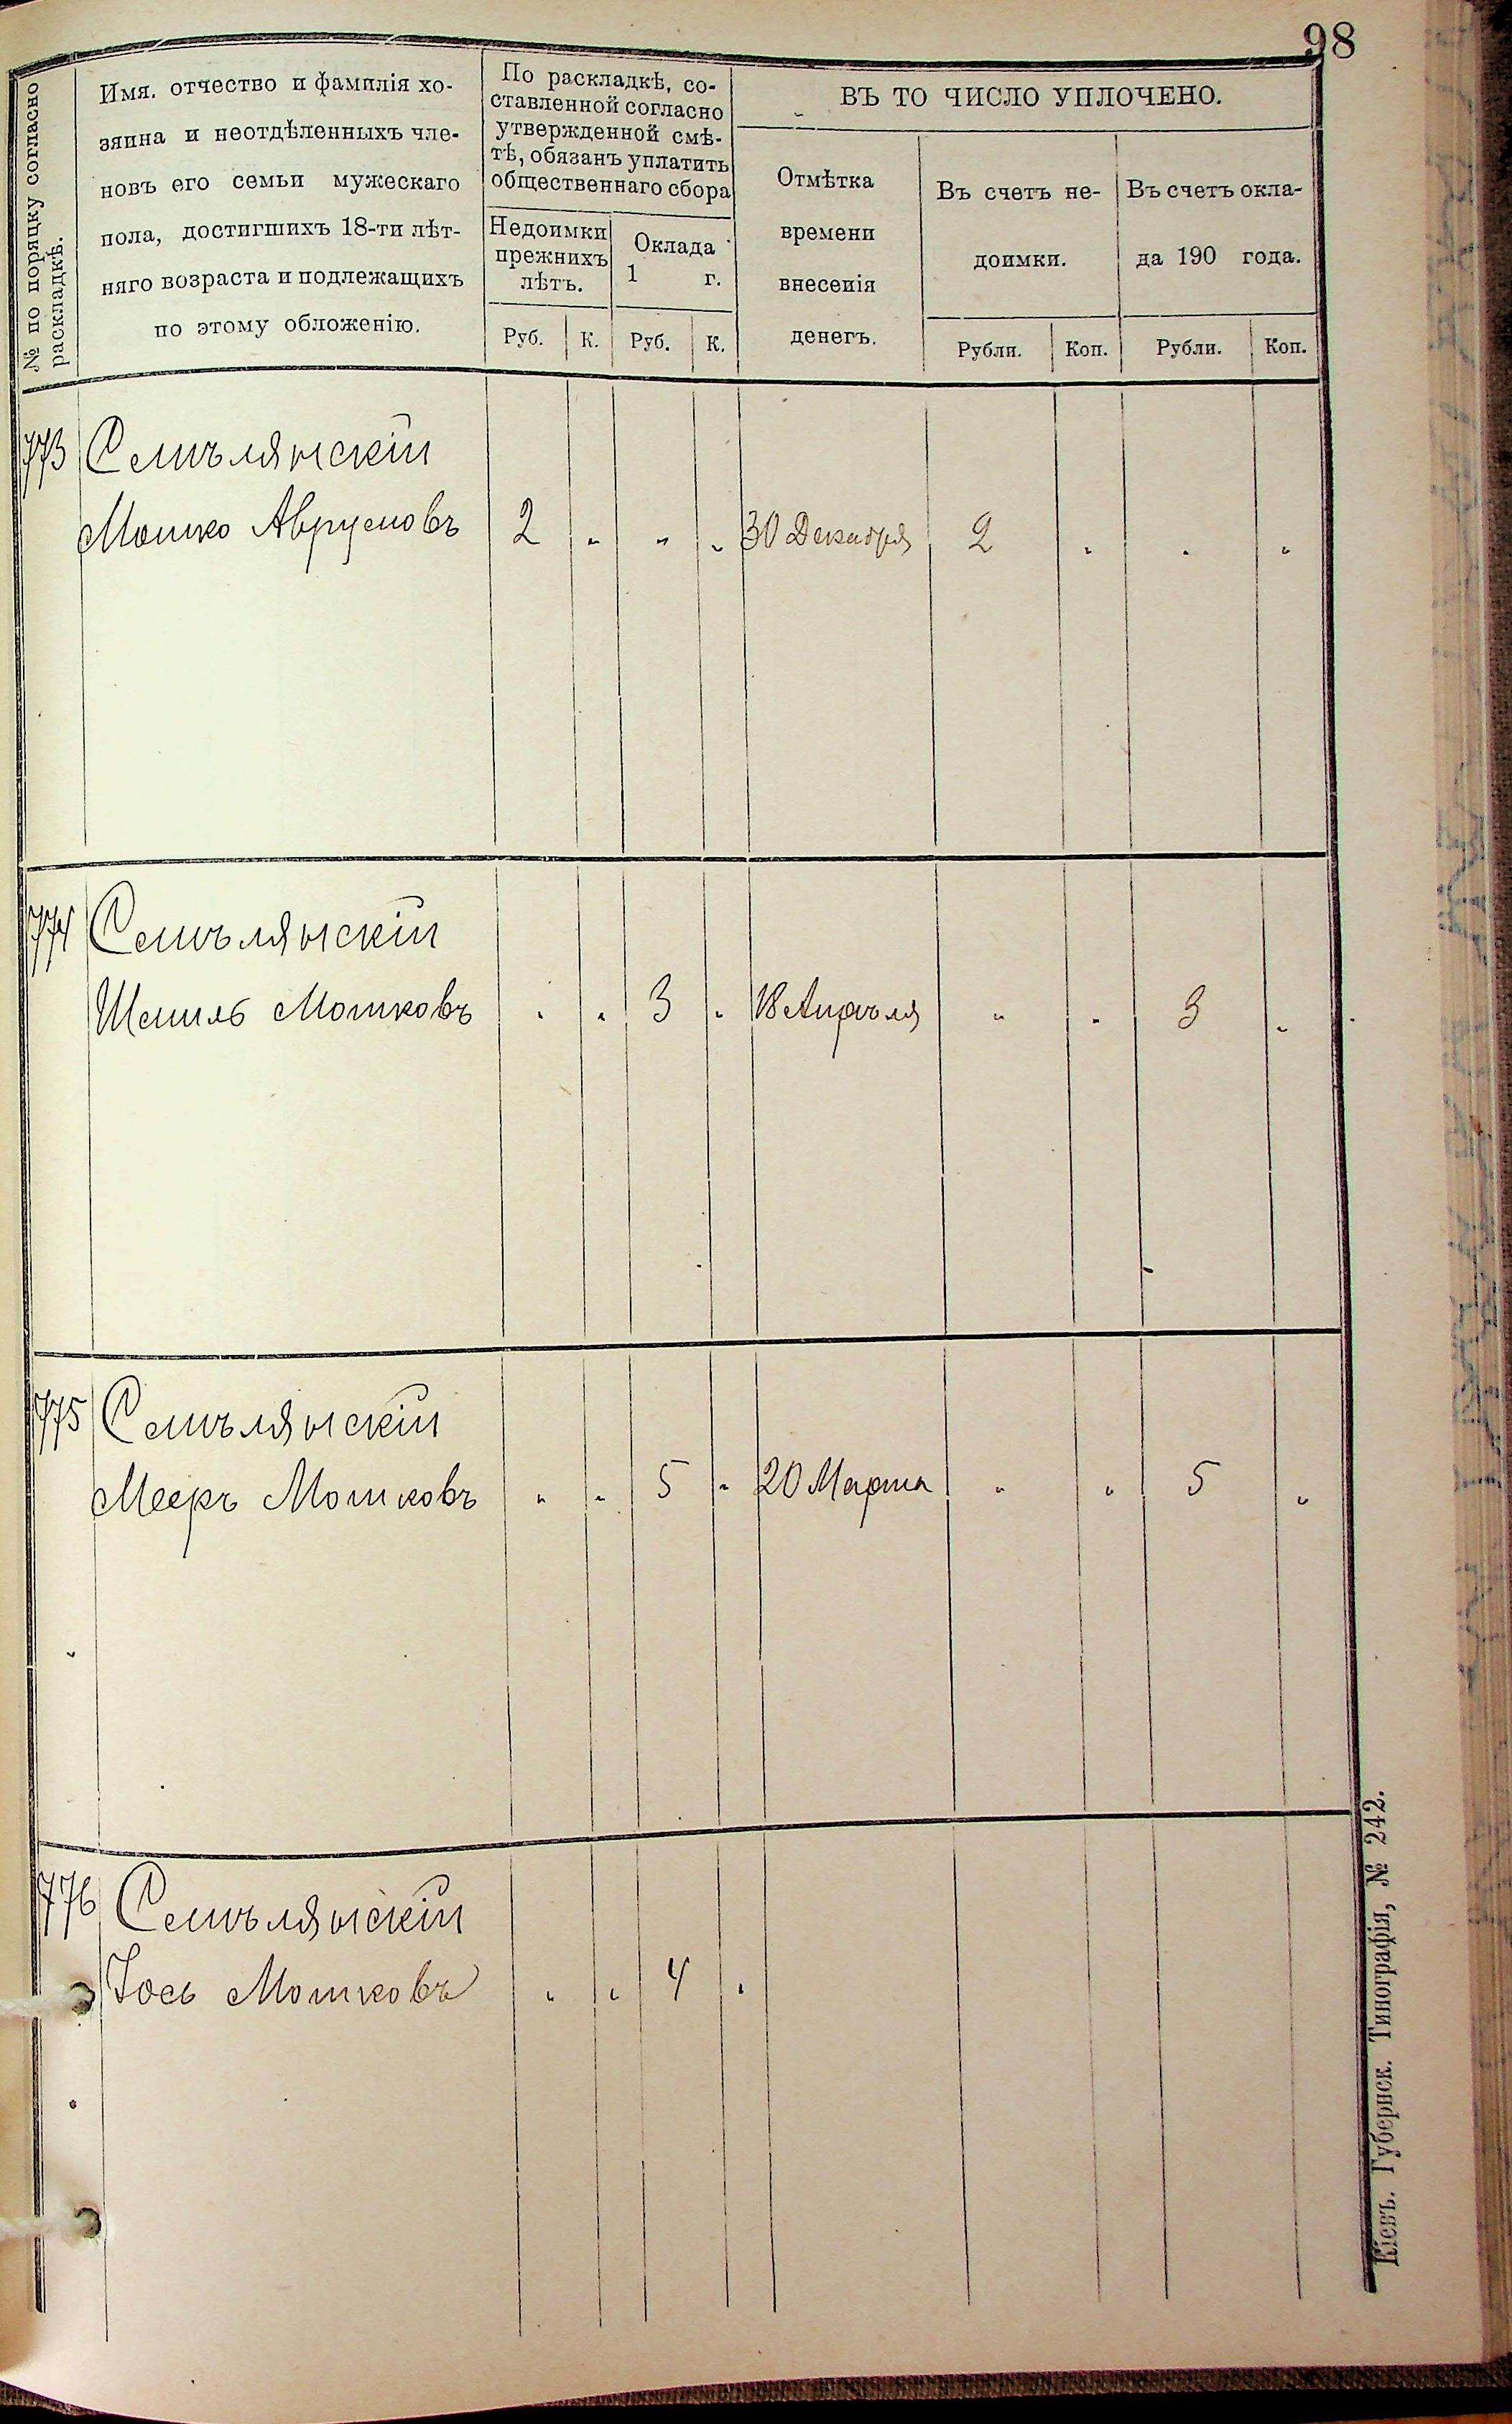 98
№ по порядку согласно
раскладкѣ.
Имя, отчество и фамилія хо-
зяина и неотдѣленныхъ чле-
новъ его семьи мужескаго
пола, достигшихъ 18-ти лѣт-
няго возраста и подлежащихъ
по этому обложенію.
По раскладкѣ, со-
ставленной согласно
утвержденной смѣ-
тѣ, обязанъ уплатить
общественнаго сбора
Недоимки
прежнихъ
лѣтъ.
Оклада
1 г.
Руб. К. Руб. К.
ВЪ ТО ЧИСЛО УПЛОЧЕНО.
Отмѣтка
времени
внесенія
денегъ.
Въ счетъ не-
доимки.
Въ счетъ окла-
да 190 года.
Рубли. Коп. Рубли. Коп.
773 Семѣлянскій
Мошко Аврумовъ 2 " " " 30 Декабря 2 " " "
774 Семѣлянскій
Шмиль Мошковъ " " 3 " 18 Апрѣля " " 3 "
775 Семѣлянскій
Мееръ Мошковъ " " 5 " 20 Марта " " 5 "
776 Семѣлянскій
Іось Мошковъ " " 4 "
Кіевъ. Губернск. Типографія, № 242.